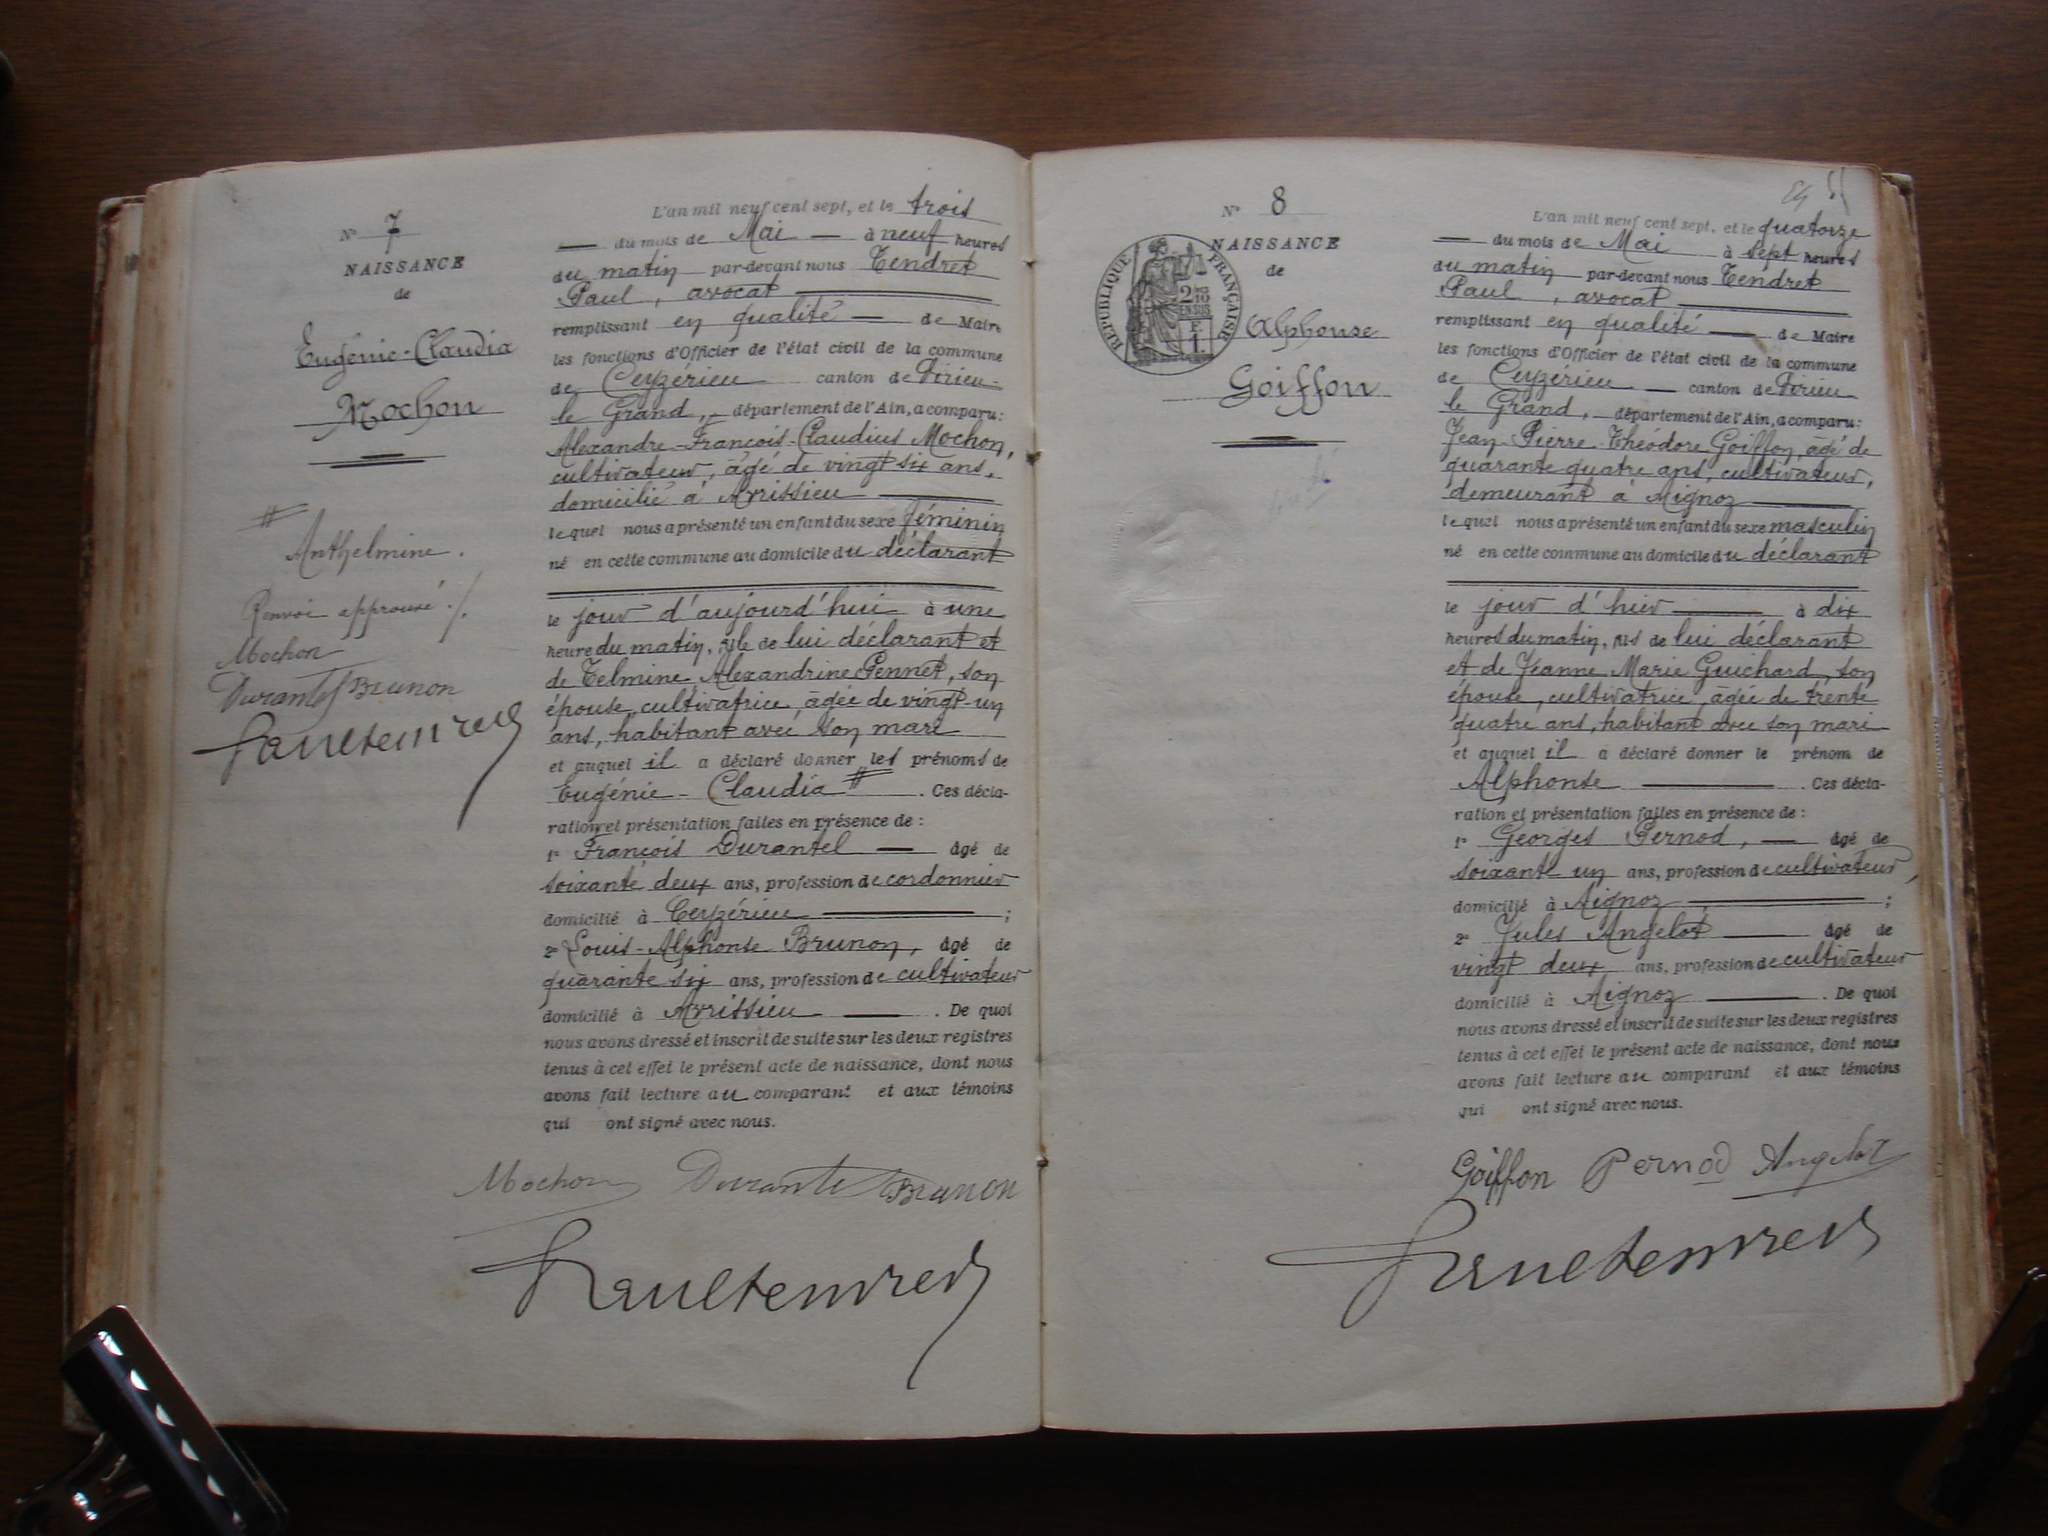 Nº 7
NAISSANCE
de
Eugénie-Claudia
Mochon
#
Anthelmine.
Renvoi approuvé ./.
Mochon
Durantel Brunon
L'an mil neuf cent sept, et le trois
du mois de Mai à neuf heures
du matin par-devant nous Tendret
Paul, avocat
remplissant en qualité de Maire
les fonctions d'Officier de l'état civil de la commune
de Ceyzérieu canton de Virieu-
le Grand, département de l'Ain, a comparu:
Alexandre-François-Claudius Mochon,
cultivateur, âgé de vingt six ans,
domicilié à Avrissieu
lequel nous a présenté un enfant du sexe féminin
né en cette commune au domicile du déclarant
le jour d'aujourd'hui à une
heure du matin, fille de lui déclarant et
de Telmine Alexandrine Pennet, son
épouse, cultivatrice, âgée de vingt-un
ans, habitant avec son mari
et auquel il a déclaré donner les prénoms de
Eugénie-Claudia #. Ces décla-
ration et présentation faites en présence de:
1º François Durantel âgé de
soixante deux ans, profession de cordonnier
domicilié à Ceyzérieu ;
2º Louis-Alphonse Brunon, âgé de
quarante six ans, profession de cultivateur
domicilié à Avrissieu. De quoi
nous avons dressé et inscrit de suite sur les deux registres
tenus à cet effet le présent acte de naissance, dont nous
avons fait lecture au comparant et aux témoins
qui ont signé avec nous.
Mochon Durantel Brunon
Nº 8
NAISSANCE
de
RÉPUBLIQUE FRANÇAISE
2/10
EN SUS
F.
1.
Alphonse
Goiffon
L'an mil neuf cent sept, et le quatorze
du mois de Mai à sept heures
du matin par-devant nous Tendret
Paul, avocat
remplissant en qualité de Maire
les fonctions d'Officier de l'état civil de la commune
de Ceyzérieu canton de Virieu
le Grand, département de l'Ain, a comparu:
Jean-Pierre-Théodore Goiffon, âgé de
quarante quatre ans, cultivateur,
demeurant à Aignoz
lequel nous a présenté un enfant du sexe masculin
né en cette commune au domicile du déclarant
le jour d'hier à dix
heures du matin, fils de lui déclarant
et de Jeanne Marie Guichard, son
épouse, cultivatrice, âgée de trente
quatre ans, habitant avec son mari
et auquel il a déclaré donner le prénom de
Alphonse. Ces décla-
ration et présentation faites en présence de:
1º Georges Pernod, âgé de
soixante un ans, profession de cultivateur,
domicilié à Aignoz ;
2º Jules Angelot âgé de
vingt deux ans, profession de cultivateur
domicilié à Aignoz. De quoi
nous avons dressé et inscrit de suite sur les deux registres
tenus à cet effet le présent acte de naissance, dont nous
avons fait lecture au comparant et aux témoins
qui ont signé avec nous.
Goiffon Pernod Angelot